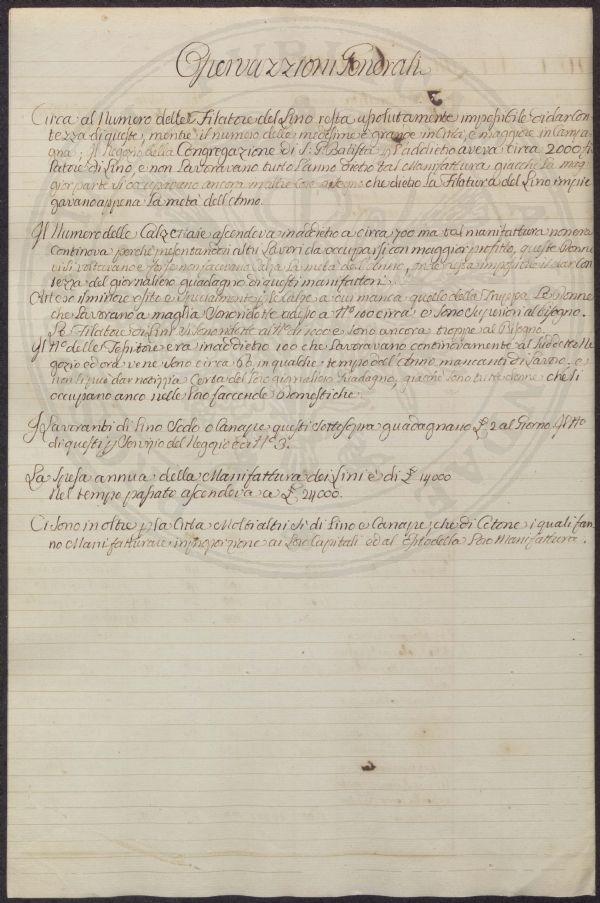 Osservazzioni Generali
Circa al Numero delle Filatore del Lino resta assolutamente impossibile di dar con
tezza di queste, mentre il numero delle medesime è grande in Città, e maggiore in Campa
gna; Il Negozio della Congregazione di S. G. Batista p l'addietro aveva circa 2000 fi
latore di Lino, e non lavoravano tutto l'anno dietro tal Manifattura giacche la mag
gior parte si occupavano ancora in altre loro che dietro la Filatura del Lino impie
gavano appena la metà dell'Anno.
Il Numero delle Calzettaie ascendeva in addietro a circa 700 ma tal manifattura non era
continova perche presentandosi altri Lavori da occuparsi con maggior profitto, queste Donne
vi si voltavano e forse non facevano Calze la metà dell'Anno, onde resta impossibile il dar con
tezza del giornaliero guadagno di questi manifattori.
Atteso il minore esito e specialmente p le Calze a cui manca quello della Truppa Le Donne
che Lavorano a maglia sono ridotte adesso a N.º 100 circa e sono superiori al bisogno.
Le Filatore di Lini si sono ridotte al N.º di 1000 e sono ancora troppe al Bisogno.
Il N.º delle Tessitore era in addietro 100 che Lavoravano continovamente al suddetto Ne
gozio ed ora ve ne sono circa 60 in qualche tempo dell'Anno mancanti di Lavoro. e
non si può dar notizia Certa del loro giornaliero Guadagno, giacche sono tutte donne che si
occupano anco nelle loro faccende Domestiche.
I Lavoranti di Lino Sodo o Canape questi sottosopra guadagnano £ 2 al Giorno. Il N.º
di questi p servizio del Negozio è di N.º 3.
La Spesa annua della Manifattura dei Lini è di £ 14000
Nel tempo passato ascendeva a £ 24000.
Ci sono inoltre p la Città Molti altri sì di Lino e Canape, che di Cotone i quali fan
no Manifatturare in proporzione ai loro Capitali ed al Esito della loro Manifattura.